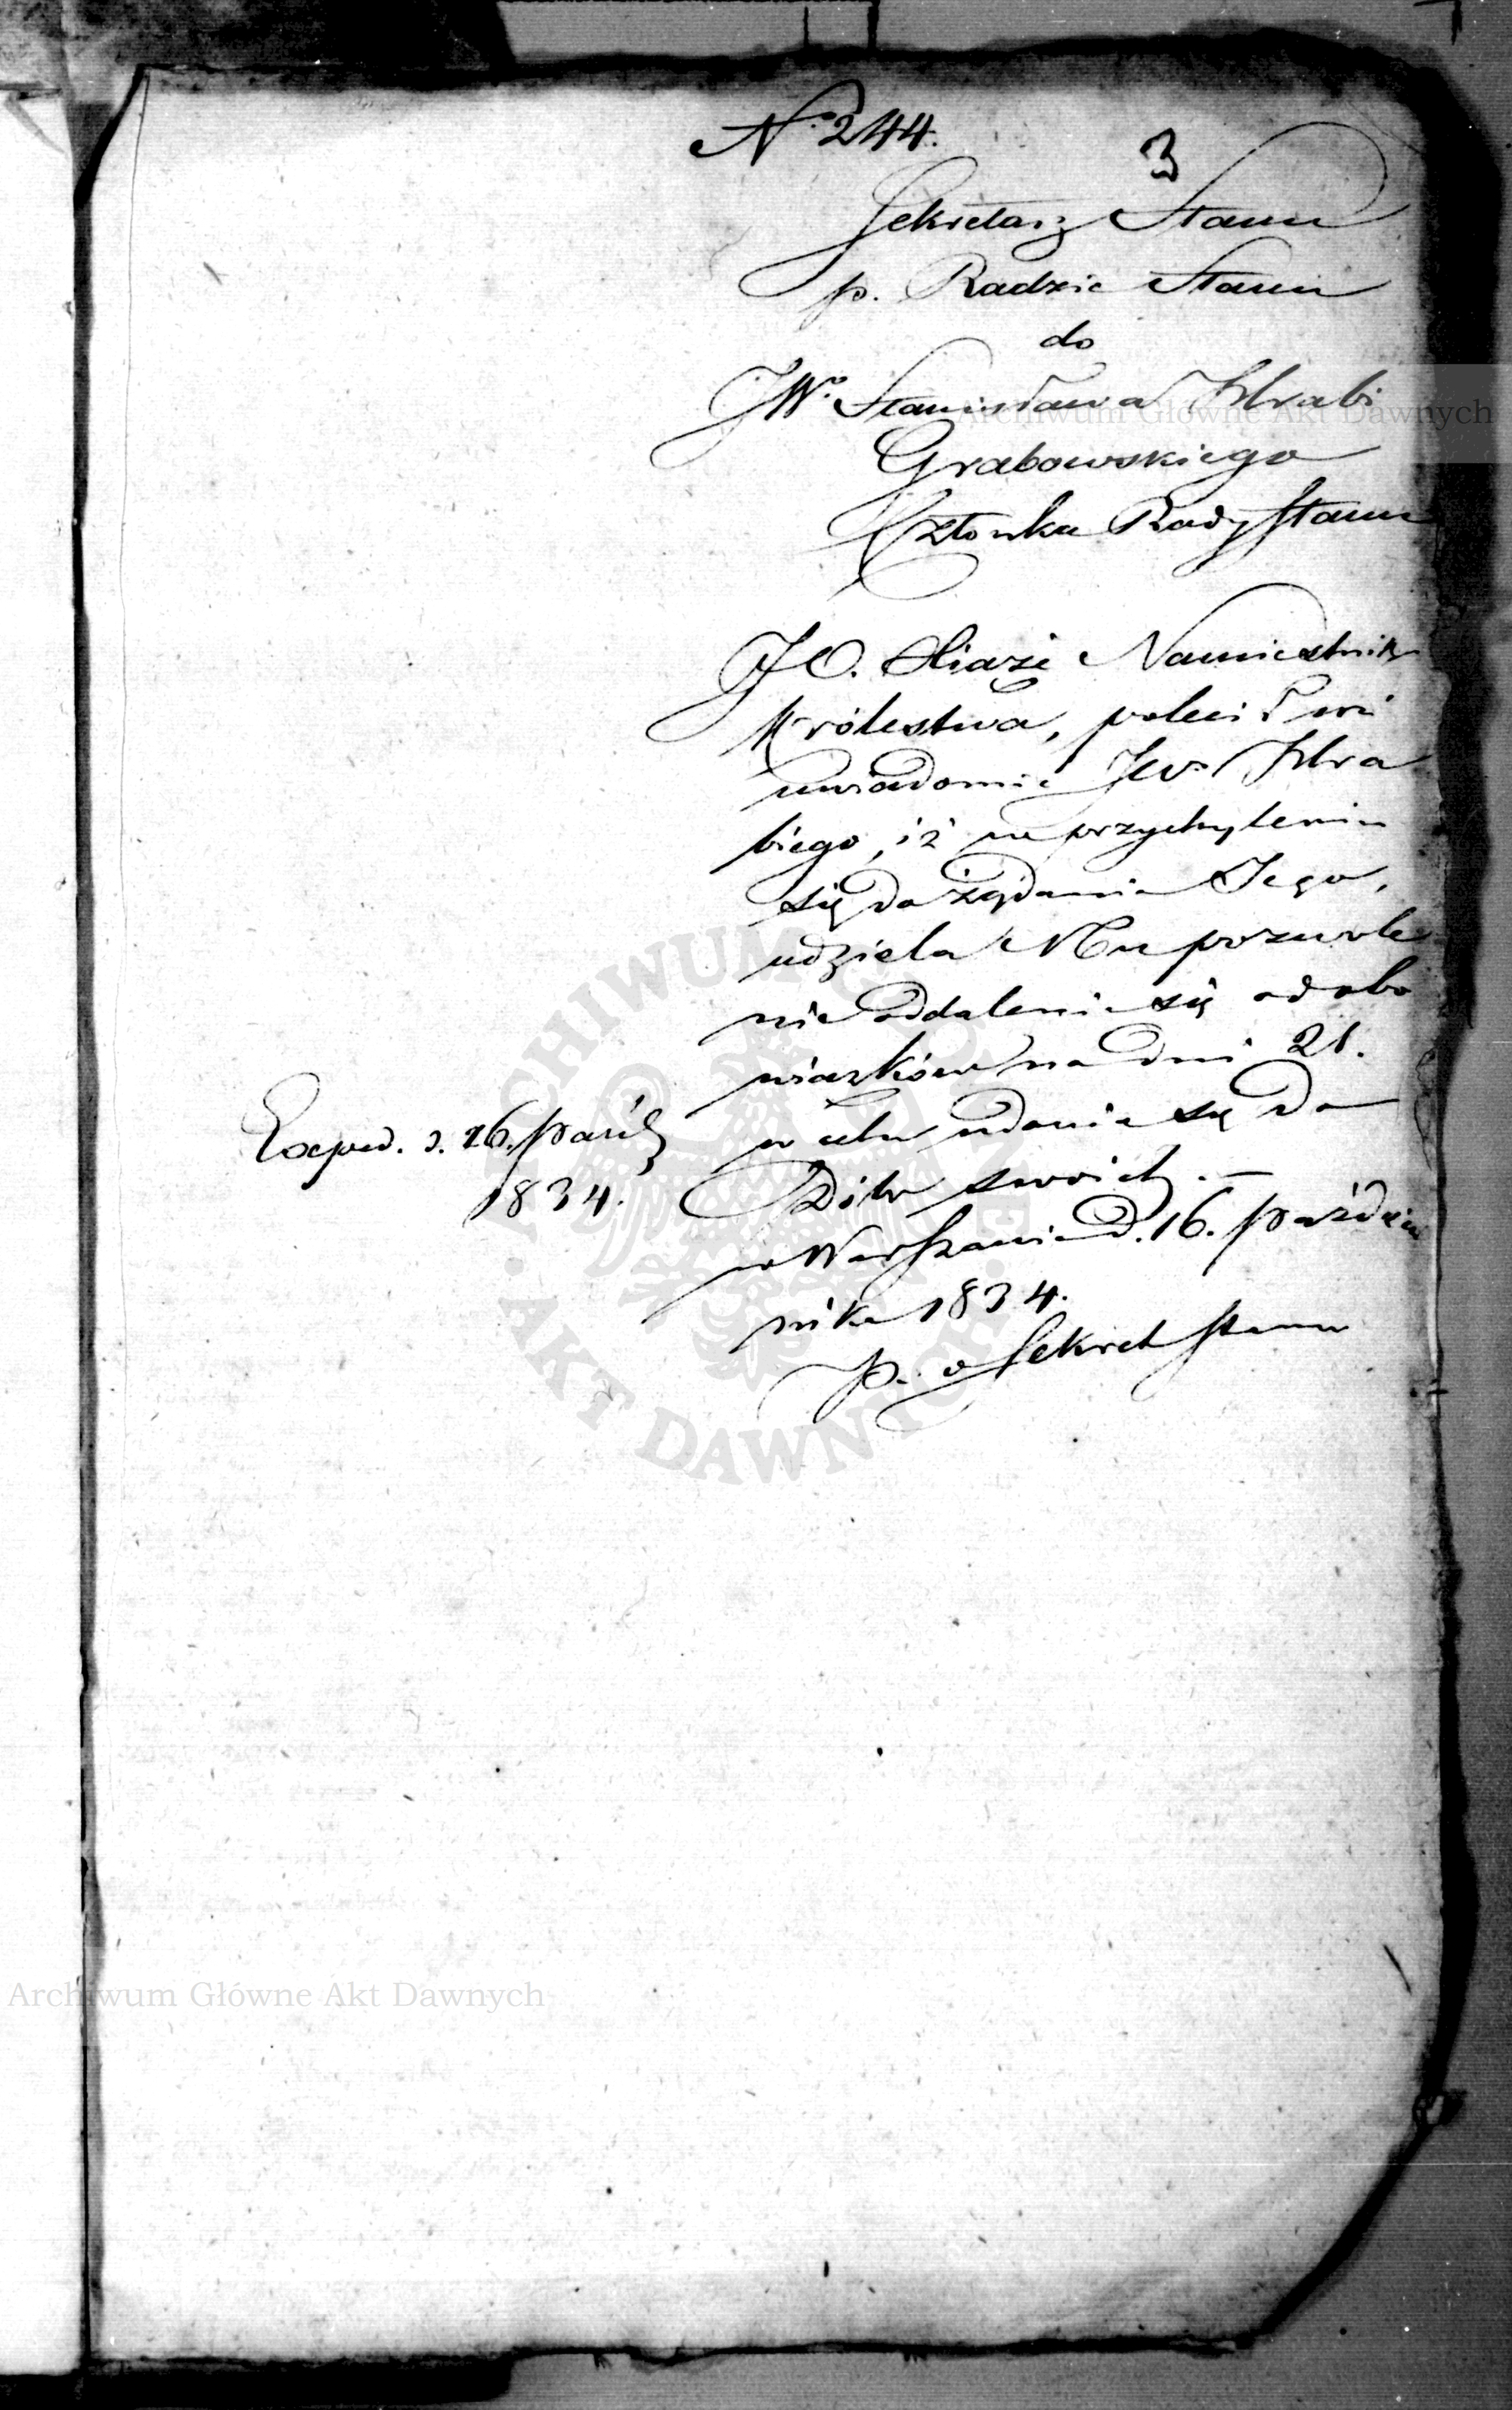 No 244.
3
Sekretarz Stanu
p. Radzie Stanu
do
JW. Stanisława Hrabi
Grabowskiego
Członka Rady Stanu
JO. Xiąże Namiestnik
Królestwa, polecił mi
uwiadomić JW. Hra
biego, iż w przychyleniu
się do żądania Jego,
udziela Mu pozwole
nie oddalenia się od obo
wiązków na dni 21.
w celu udania się do
Dóbr swoich. —
w Warszawie d. 16. Paździer
nika 1834.
p. o Sekret Stanu
Exped. d. 16. Paźdz
1834.
Archiwum Główne Akt Dawnych
ARCHIWUM GŁÓWNE · AKT DAWNYCH ·
Archiwum Główne Akt Dawnych